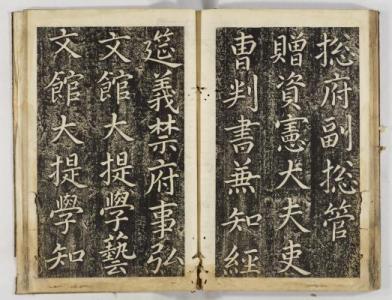 摠府副摠管
贈資憲大夫吏
曹判書兼知經
筵義禁府事弘
文館大提學藝
文館大提學知